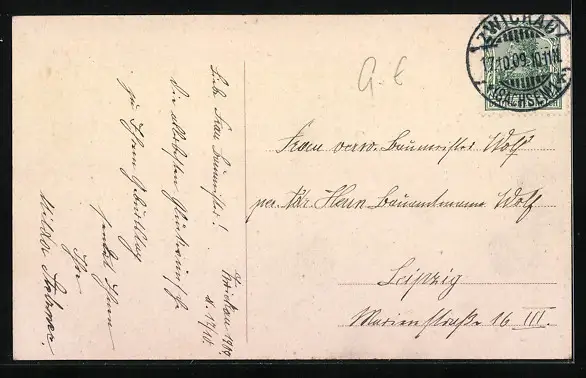 Liebe Frau Baumeister!
Zwickau 1909
d. 17/10.
Die allerbesten Glückwünsche
zu Ihrem Geburtstag
sendet Ihnen
Ihre
G. E
ZWICKAU
17.10.09.10-11N.
(SACHSEN)
Frau verw. Baumeister Wolf
per. Adr. Herrn Bauamtmann Wolf
Leipzig
Marienstraße 16 III.